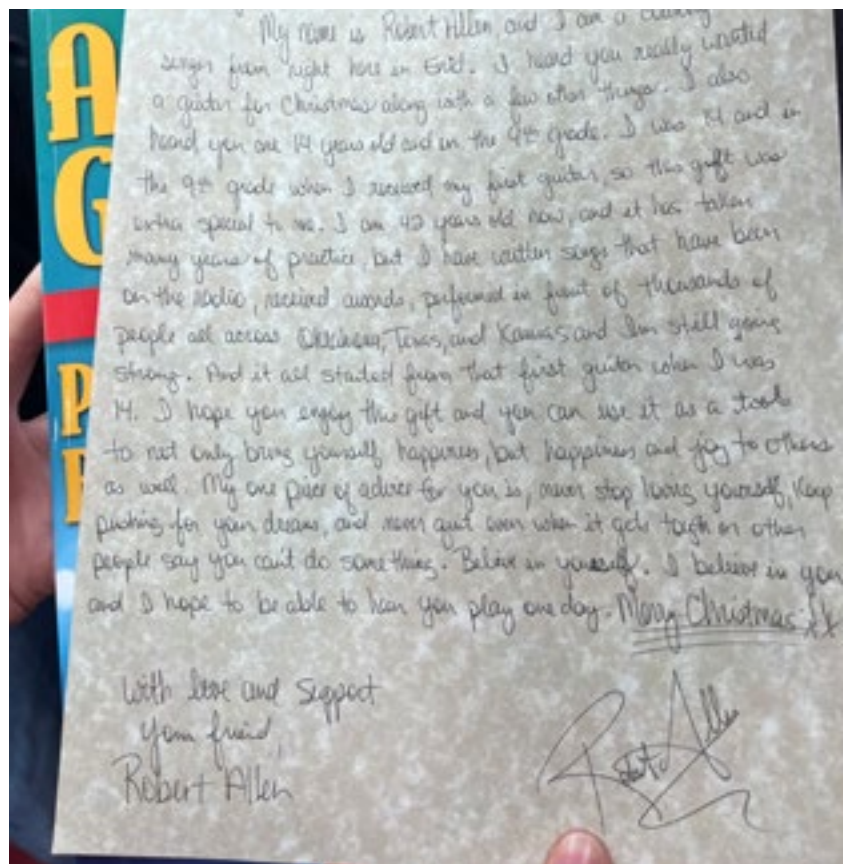 A
G
P
My name is Robert Allen and I am a country
singer from right here in Enid. I heard you really wanted
a guitar for Christmas along with a few other things. I also
heard you are 14 years old and in the 9th grade. I was 14 and in
the 9th grade when I received my first guitar, so this gift was
extra special to me. I am 42 years old now, and it has taken
many years of practice, but I have written songs that have been
on the radio, received awards, performed in front of thousands of
people all across Oklahoma, Texas, and Kansas and I'm still going
strong. And it all started from that first guitar when I was
14. I hope you enjoy this gift and you can use it as a tool
to not only bring yourself happiness, but happiness and joy to others
as well. My one piece of advice for you is, never stop loving yourself, keep
pushing for your dreams, and never quit even when it gets tough or other
people say you can't do something. Believe in yourself. I believe in you
and I hope to be able to hear you play one day. Merry Christmas!
With love and support
Your friend,
Robert Allen
Robert Allen